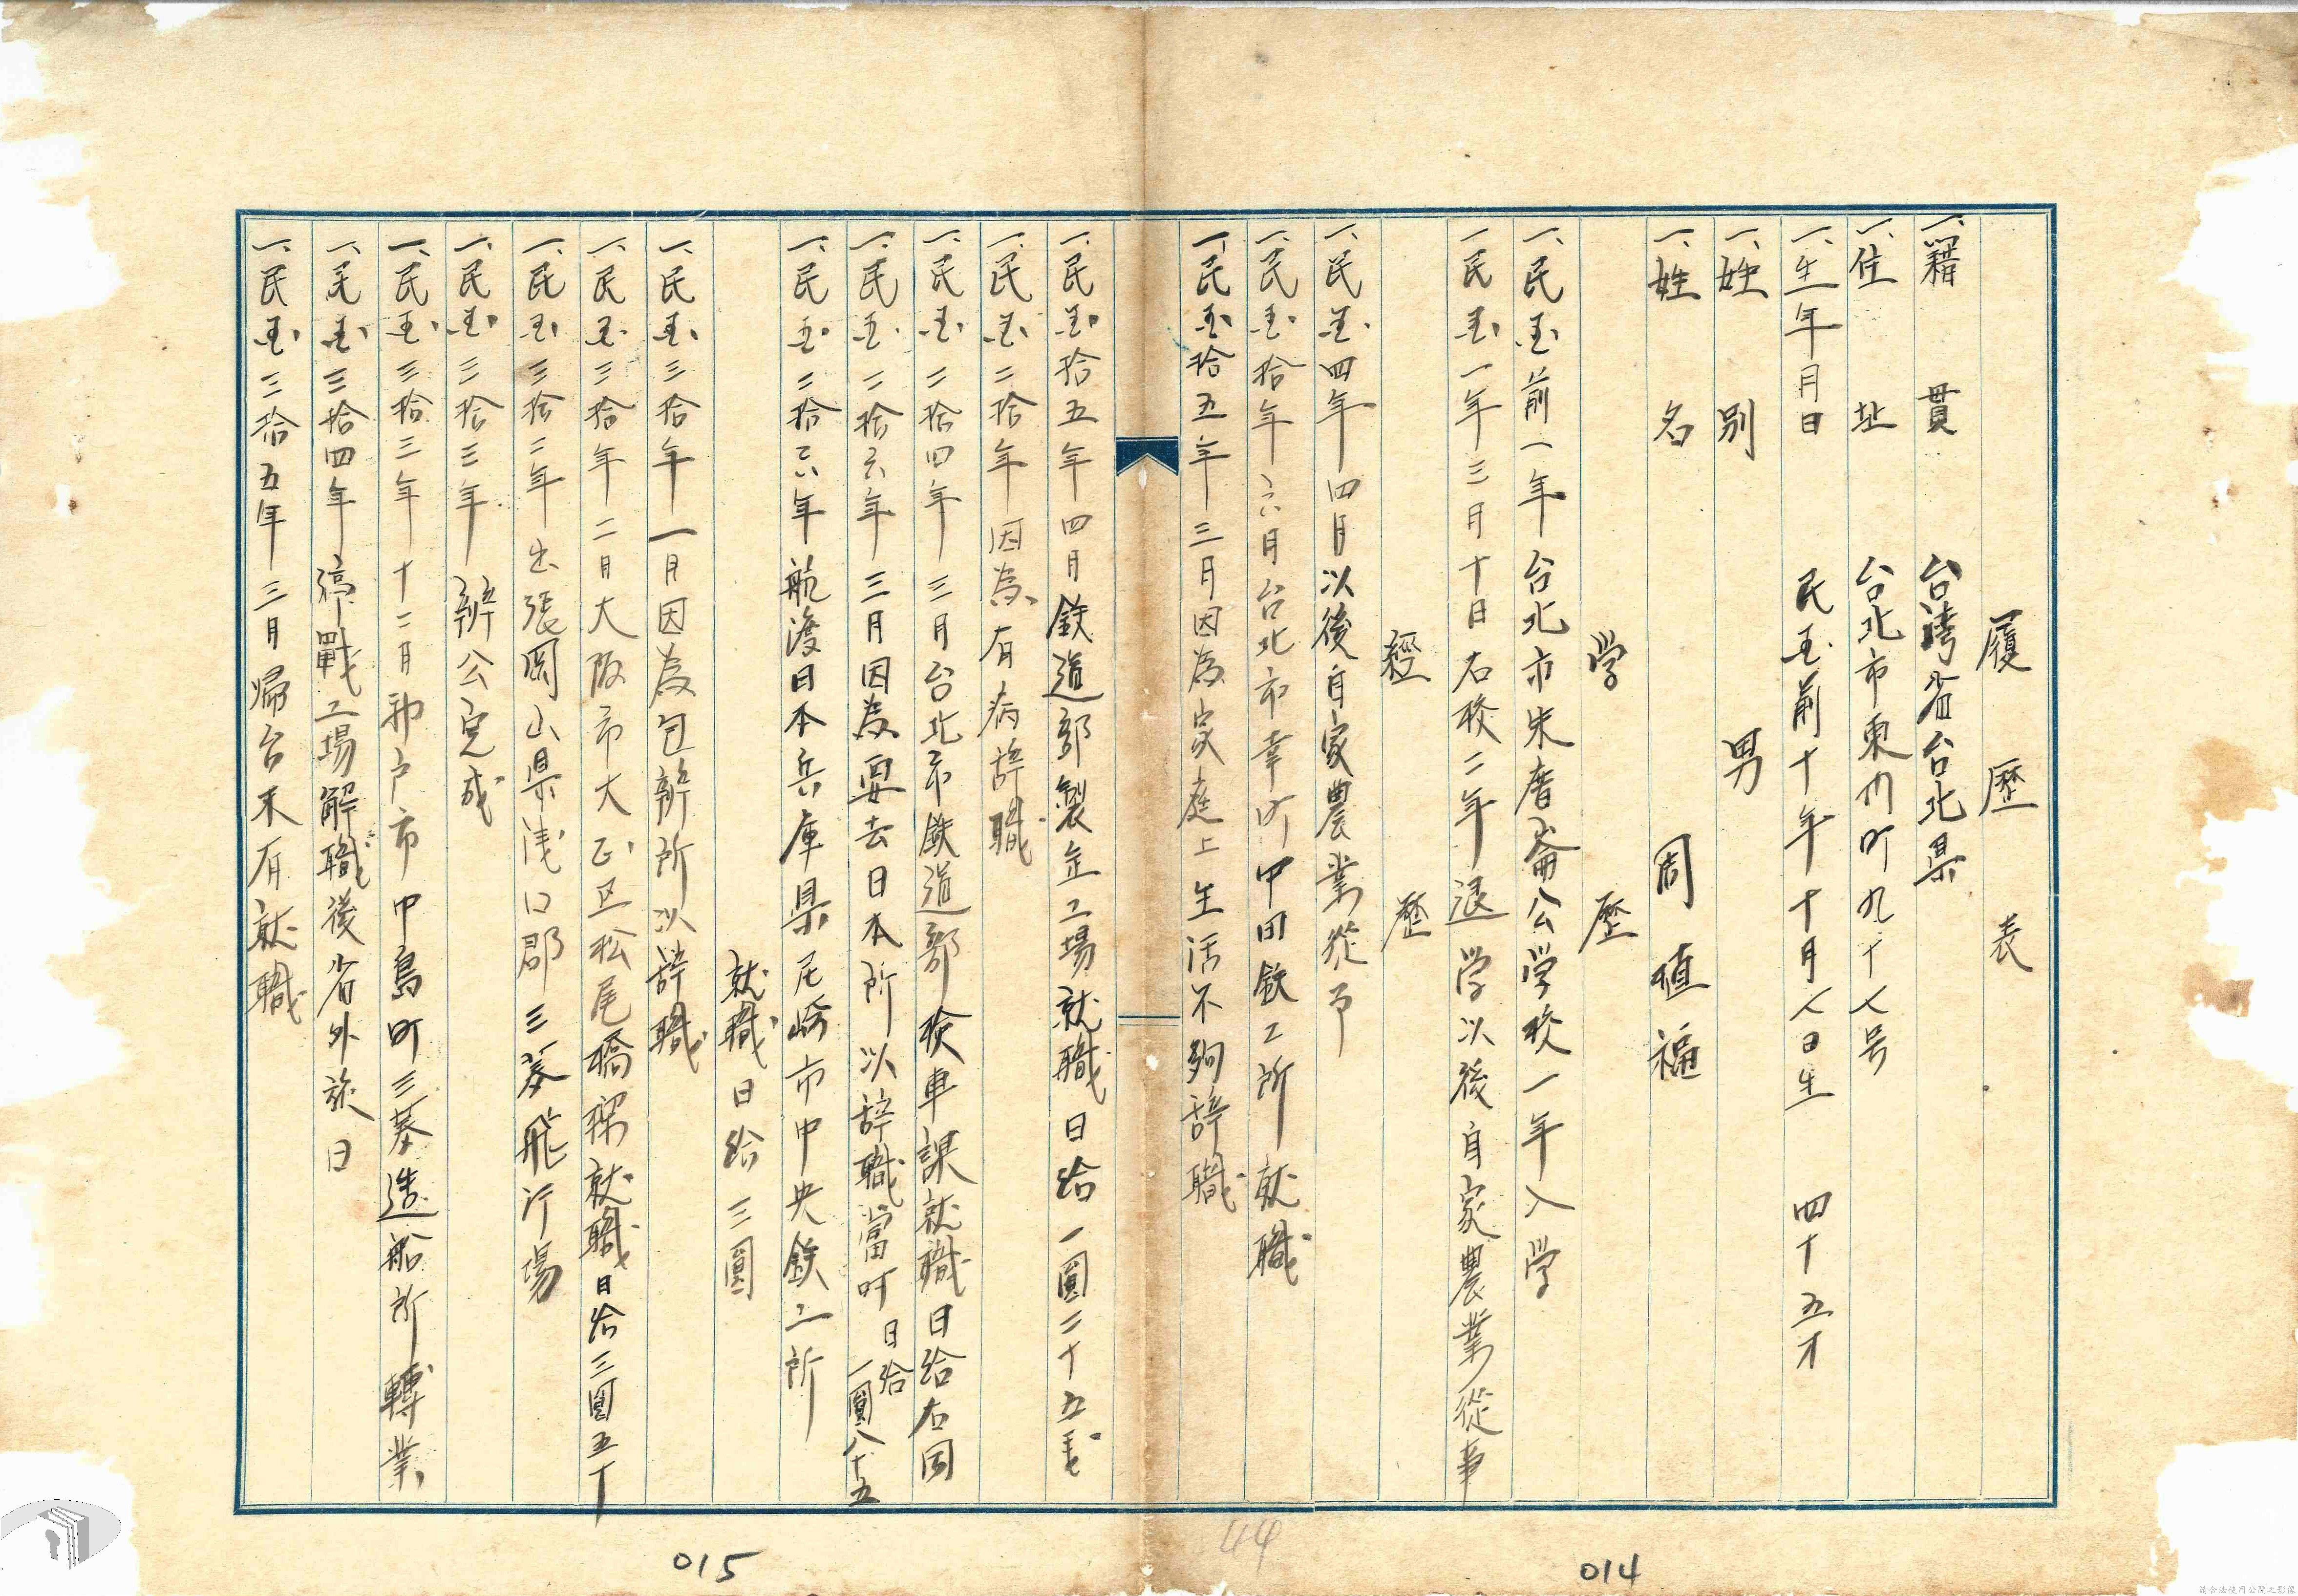 履歷表
一、籍貫 台湾省台北県
一、住址 台北市東門町九十八号
一、生年月日 民国前十年十月八日生 四十五才
一、姓別 男
一、姓名 周植福
学歷
一、民国前一年台北市朱厝崙公学校一年入学
一民国一年三月十日右校二年退学以後自家農業從事
經歷
一、民国四年四月以後自家農業從事
一、民国拾年六月台北市幸町中田鉄工所就職
一、民国拾五年三月因為家庭上生活不夠辞職
一、民国拾五年四月鉄道部製缶工場就職日給一圓二十五戔
一、民国二拾年因為有病辞職
一、民国二拾四年三月台北市鉄道部検車課就職日給右同
一、民国二拾六年三月因為要去日本所以辞職當时日給一圓八十五
一、民国二拾六年航渡日本兵庫県尼崎市中央鉄工所
就職日給三圓
一、民国三拾年一月因為包辦所以辞職
一、民国三拾年二月大阪市大正区松尾橋樑就職日給三圓五十
一、民国三拾二年出張岡山県浅口郡三菱飛行場
一、民国三拾三年辦公完成
一、民国三拾三年十二月神戶市中島町三菱造船所轉業
一、民国三拾四年停戰工場解職後省外旅日
一、民国三拾五年三月帰台未有就職
015
44
014
請合法使用公開之影像